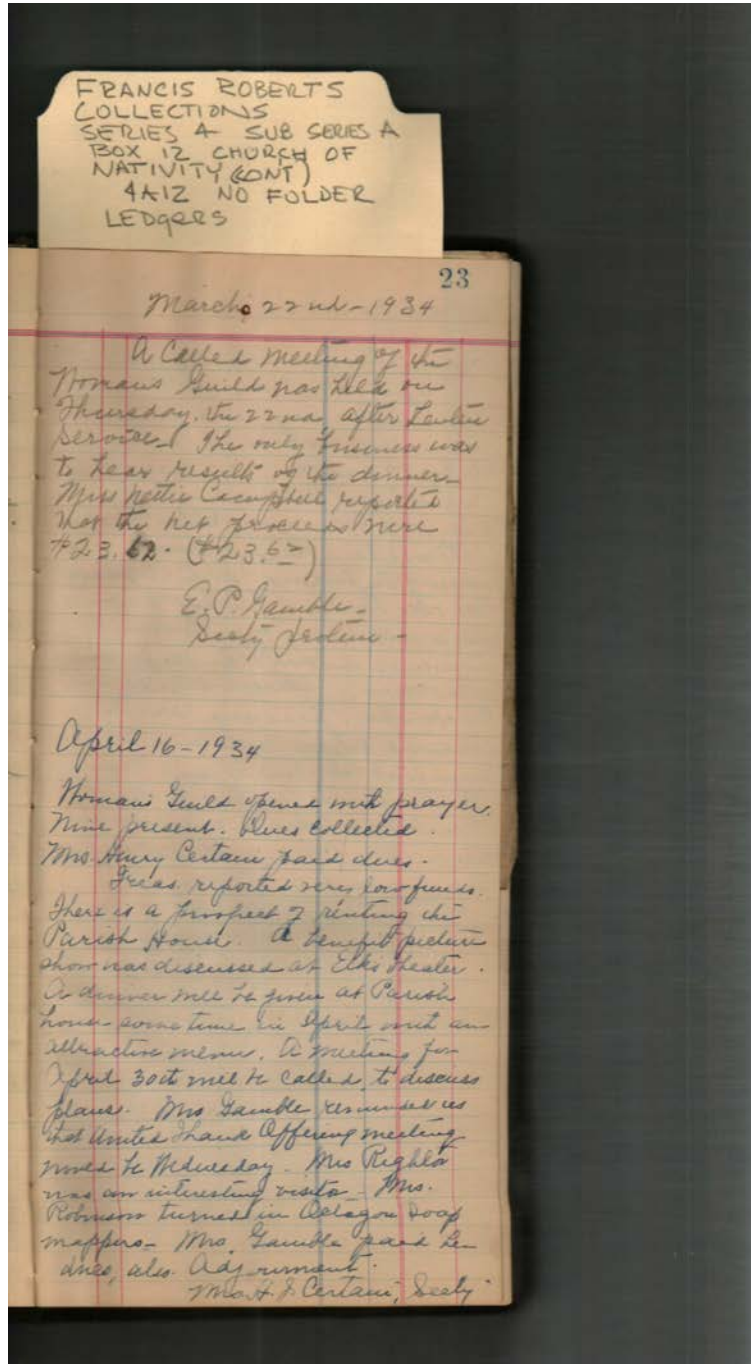 FRANCIS ROBERTS
COLLECTIONS
SERIES 4 SUB SERIES A
BOX 12 CHURCH OF
NATIVITY (CONT)
4A12 NO FOLDER
LEDGERS
23
March 22nd - 1934
A Called meeting of the
Womans Guild was held on
Thursday, the 22nd after Lenten
Service. The only business was
to hear results of the dinner.
Miss Nettie Campbell reported
that the net proceeds were
$23.62. ($23.62)
E. P. Gamble -
Secty protem -
April 16 - 1934
Woman's Guild opened with prayer.
Nine present. Dues collected.
Mrs. Henry Certain paid dues.
Treas. reported very low funds.
There is a prospect of renting the
Parish House. A benefit picture
show was discussed at Elks Theater.
A dinner will be given at Parish
house some time in April with an
attractive menu. A meeting for
April 30th will be called, to discuss
plans. Mrs Gamble reminded us
that United Thank Offering meeting
would be Wednesday. Mrs Rightor
was an interesting visitor. Mrs.
Robinson turned in Octagon Soap
wrappers. Mrs. Gamble paid her
dues, also. Adjournment.
Mrs. H. J. Certain, Secty